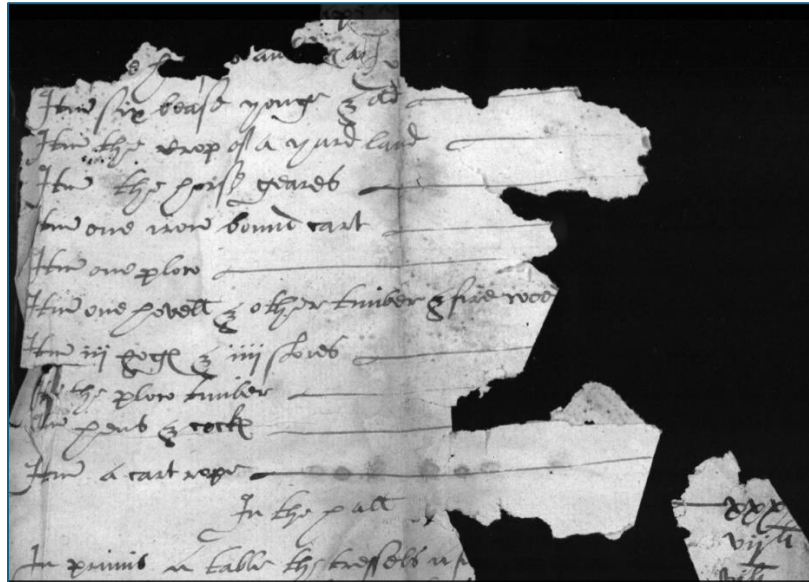 Itm six beast yonge & old
Itm the crop of a yard land
Itm the horse geares
Itm one iron bound cart
Itm one plow
Itm one hovell & other timber & fire woo
Itm iij hogs & iiij stores
the plow timber
Itm hens & cock
Itm a cart rope
In the hall
In primis a table the tressels
xxx
vij li